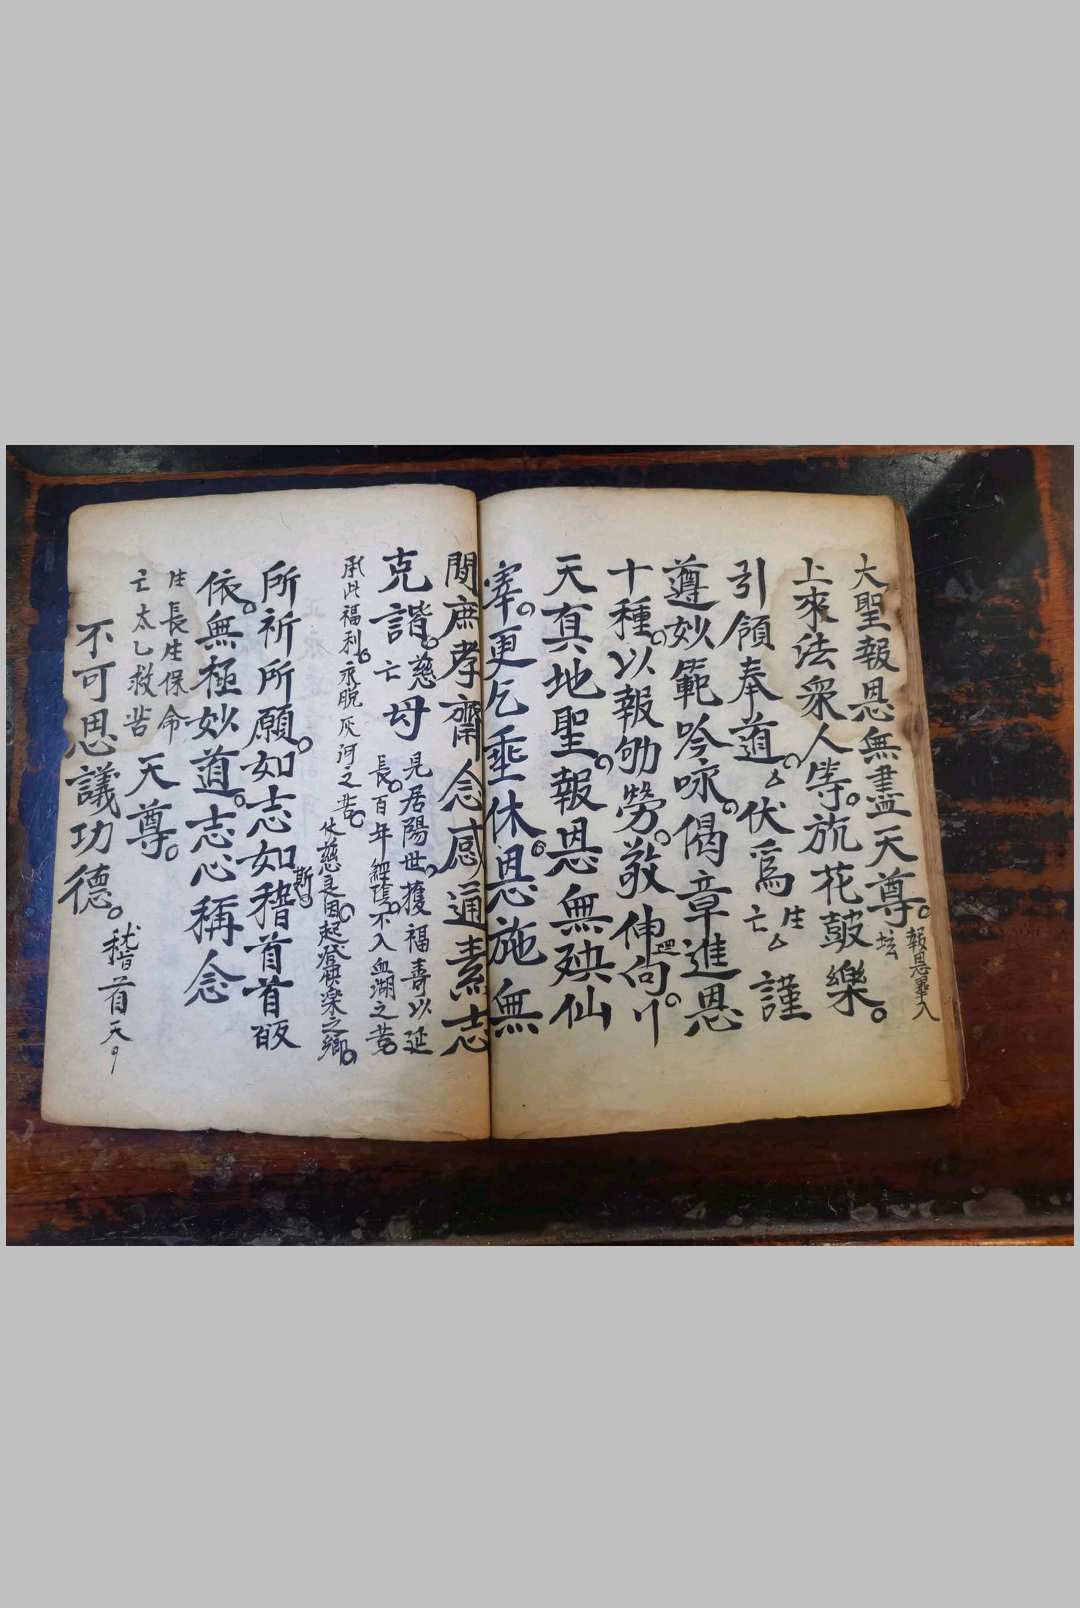 大聖報恩無盡天尊。報恩畢入
坛
上來法衆人等。旊花鼓樂。
引領奉道。厶伏爲生亡厶謹
遵妙範吟咏。偈章進恩
十種。以報劬勞。敬伸
天真地聖。報恩無殃仙
宰。更乞垂休。恩施無
間庶孝齋念感通素志
克諧。慈亡母見居陽世。獲福壽以延
長。百年經陰。不入血湖之苦。
承此福利。永脫灰河之苦。
仗慈良因。起登快楽之鄉。
斯。
所祈所願。如志如稽首首皈
依。無極妙道。志心稱念
生長生保命
亡太乙救苦天尊。
不可思議功德。
稽首天。